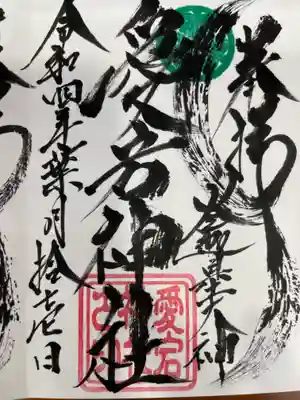 奉拝
愛宕神社
令和四年葉月拾壱日
愛宕
神社